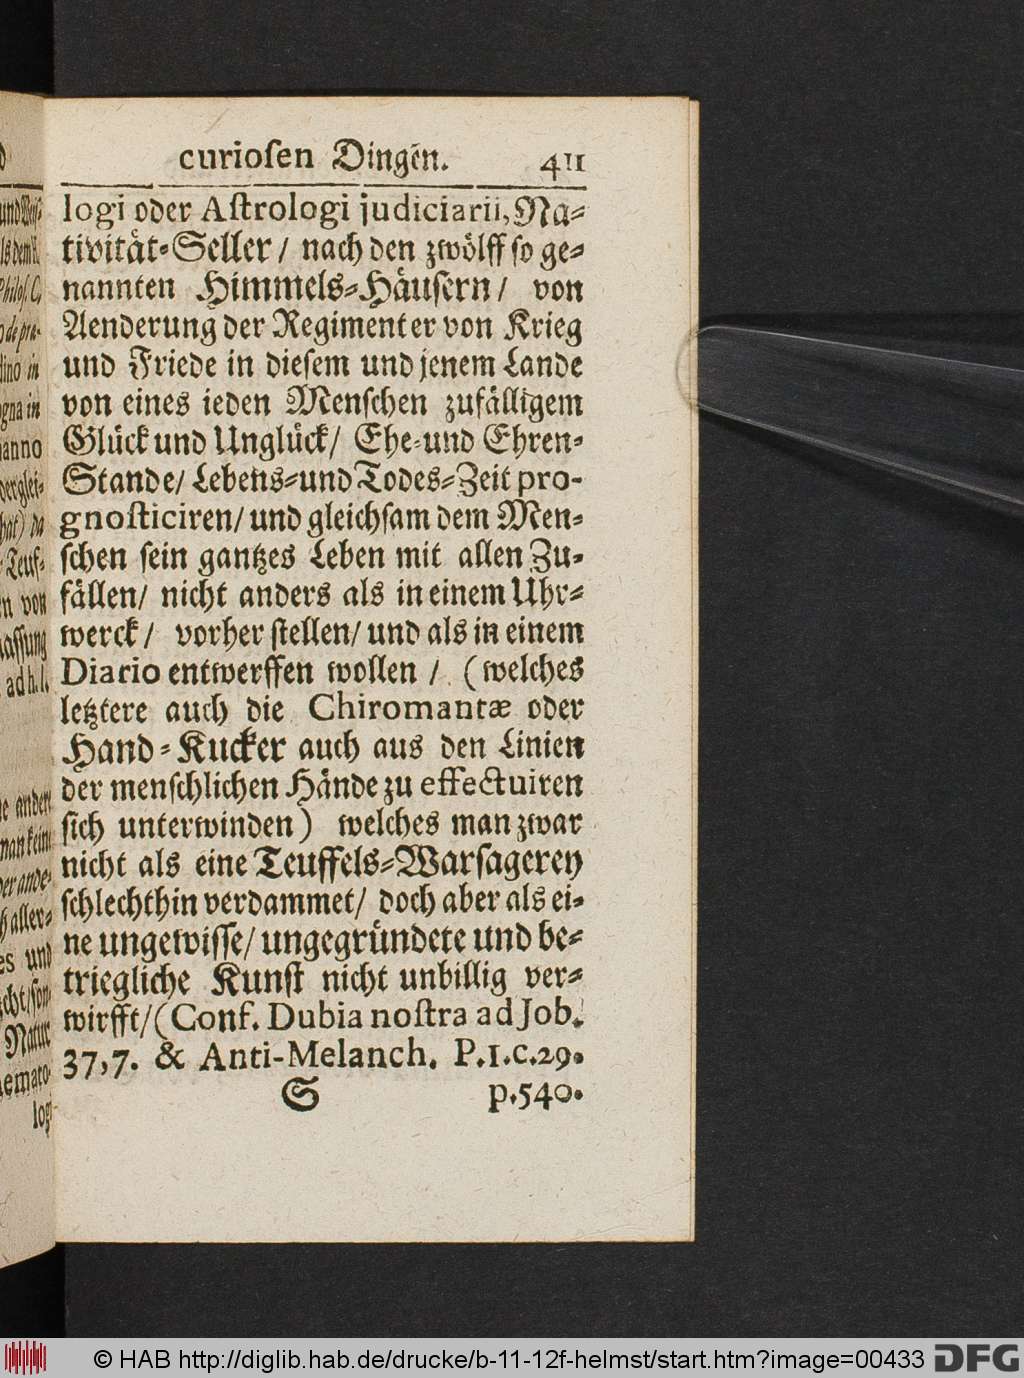 curiosen Dingen. 411
logi oder Astrologi judiciarii, Na-
tivität-Seller / nach den zwölff so ge-
nannten Himmels-Häusern / von
Aenderung der Regimenter von Krieg
und Friede in diesem und jenem Lande
von eines ieden Menschen zufälligem
Glück und Unglück / Ehe-und Ehren-
Stande / Lebens-und Todes-Zeit pro-
gnosticiren / und gleichsam dem Men-
schen sein gantzes Leben mit allen Zu-
fällen / nicht anders als in einem Uhr-
werck / vorher stellen / und als in einem
Diario entwerffen wollen / (welches
letztere auch die Chiromantæ oder
Hand-Kucker auch aus den Linien
der menschlichen Hände zu effectuiren
sich unterwinden) welches man zwar
nicht als eine Teuffels-Warsagerey
schlechthin verdammet / doch aber als ei-
ne ungewisse / ungegründete und be-
triegliche Kunst nicht unbillig ver-
wirfft / (Conf. Dubia nostra ad Job.
37,7. & Anti-Melanch. P.1.c.29.
S p.540.
© HAB http://diglib.hab.de/drucke/b-11-12f-helmst/start.htm?image=00433 DFG